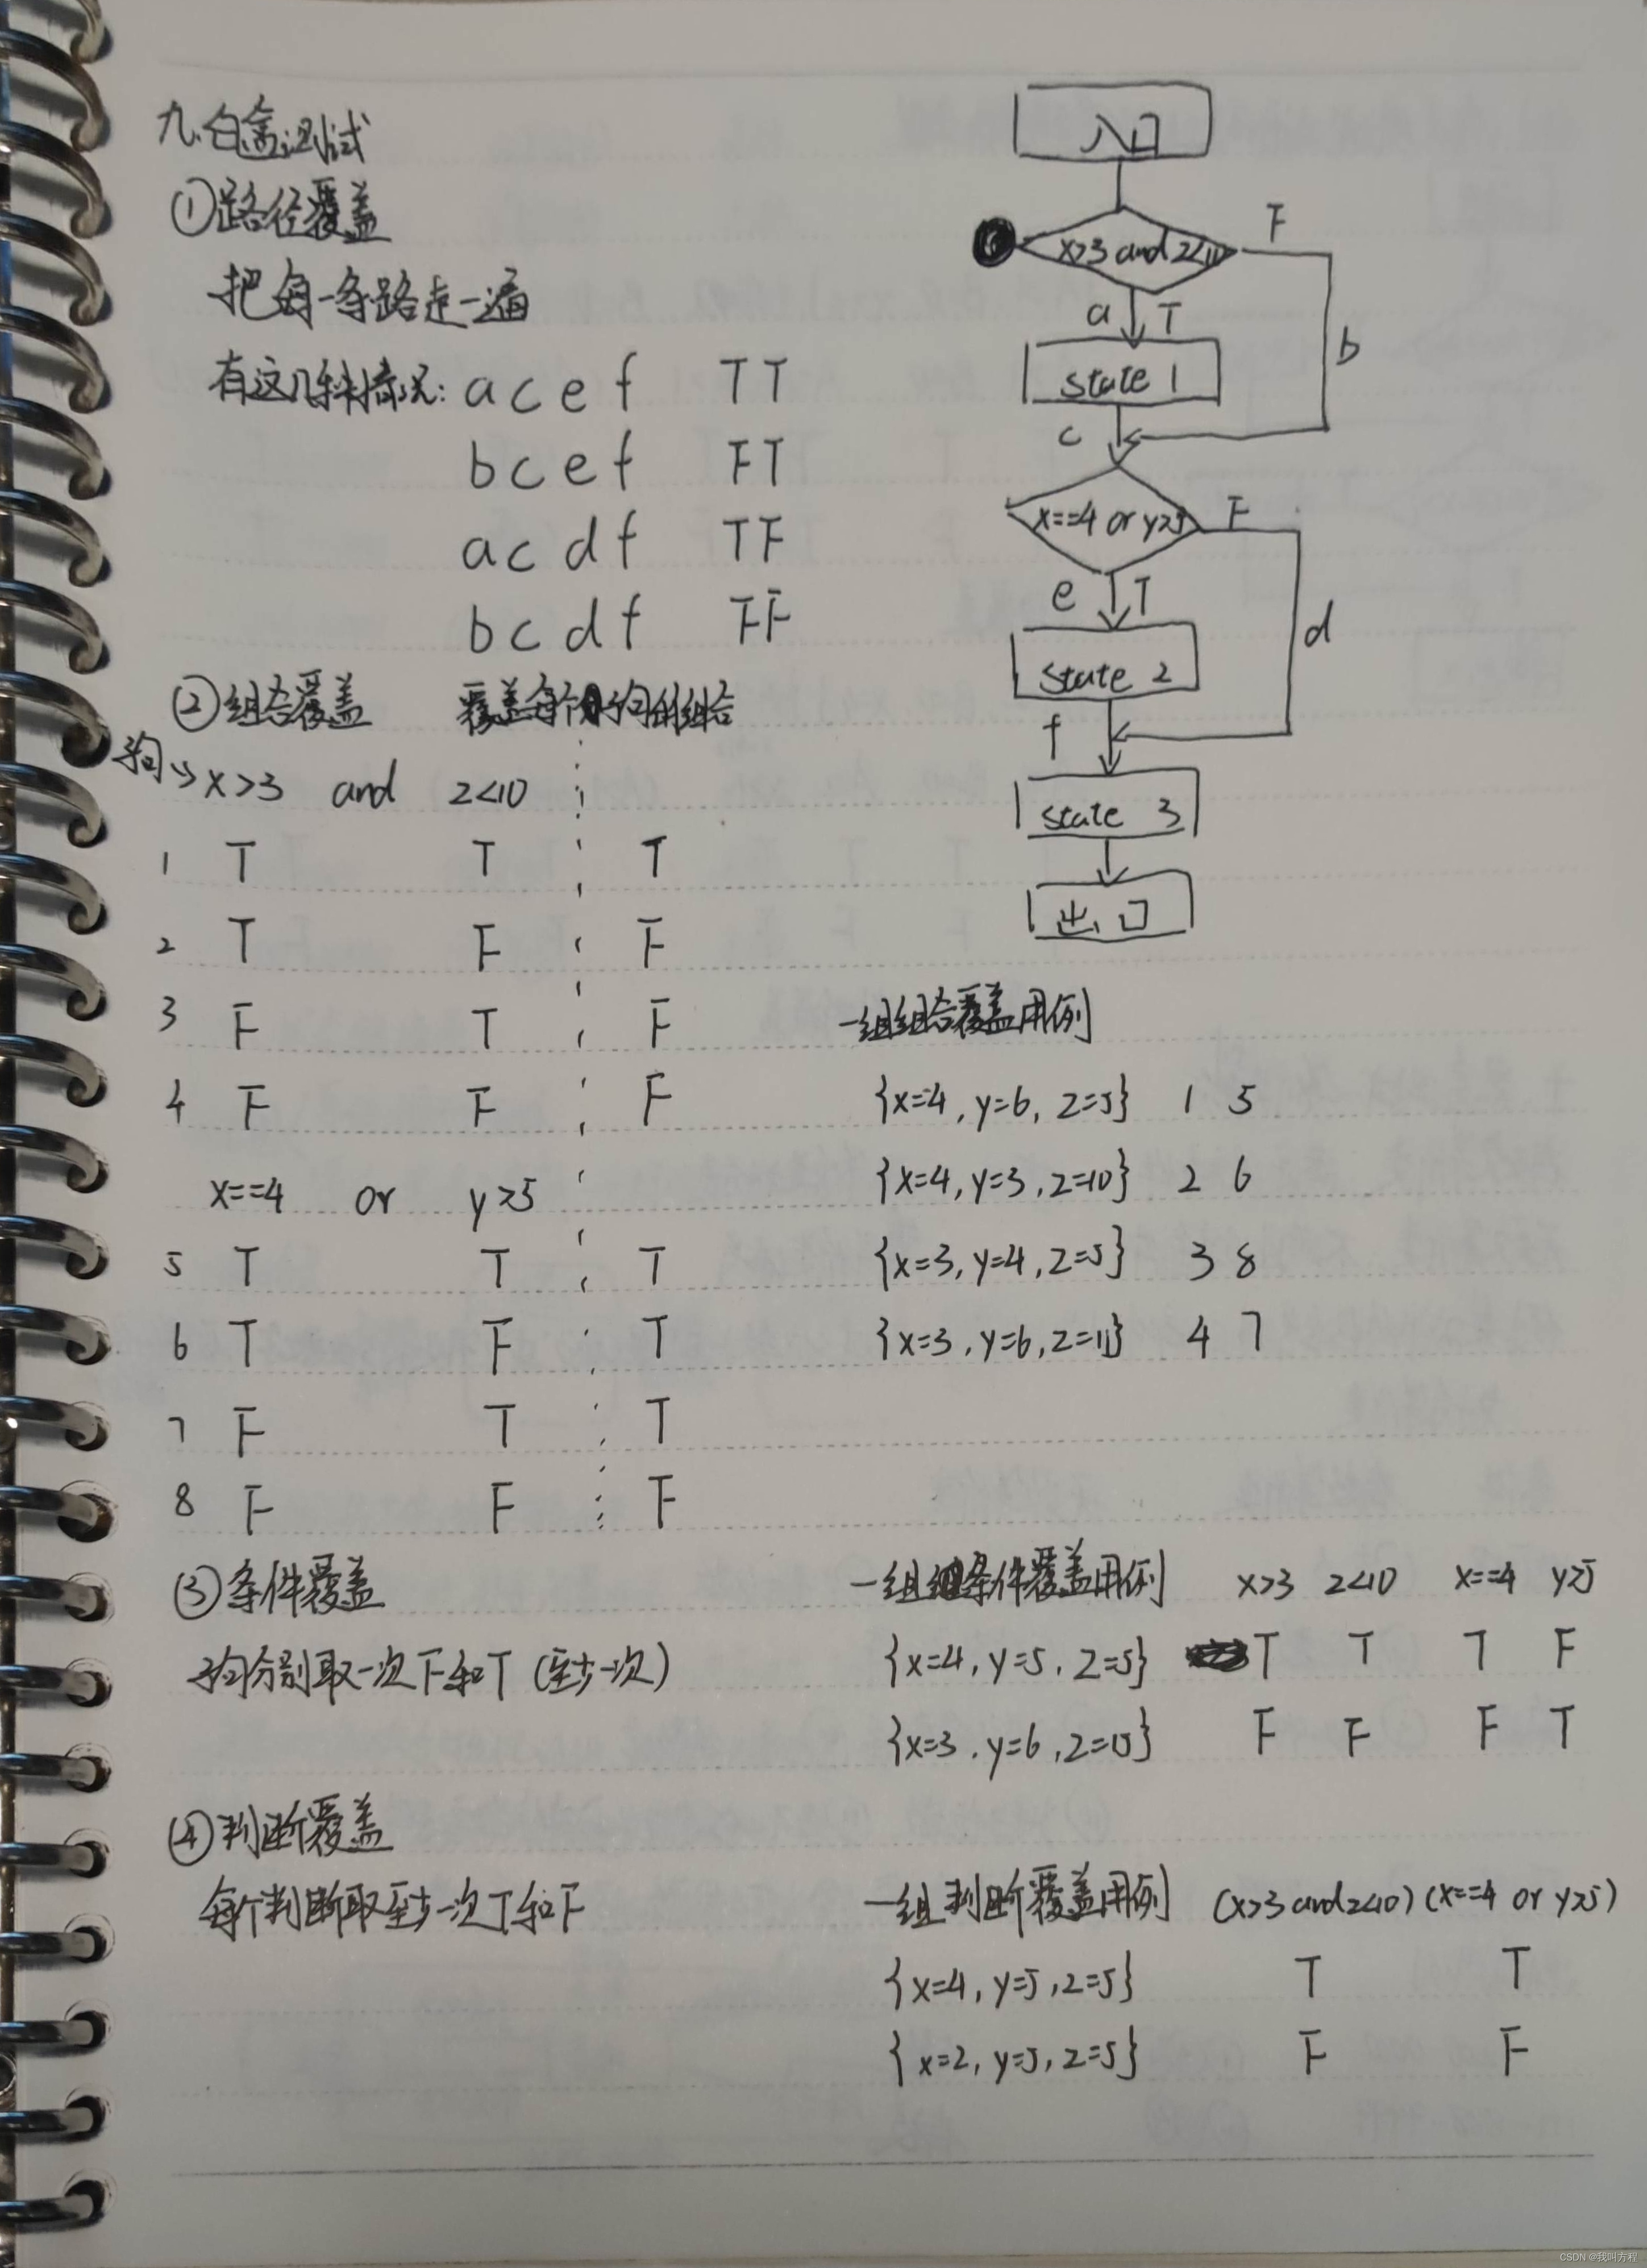 九.白盒测试
①路径覆盖
把每一条路走一遍
有这几种情况: a c e f TT
b c e f FT
a c d f TF
b c d f FF
②组合覆盖 覆盖每个子句的组合
子句→ x>3 and z<10
1 T T T
2 T F F
3 F T F
4 F F F
x==4 or y>5
5 T T T
6 T F T
7 F T T
8 F F F
③条件覆盖
子句分别取一次F和T (至少一次)
④判断覆盖
每个判断取至少一次T和F
入口
x>3 and z<10 F
a T b
state 1
c
x==4 or y>5 F
e T d
state 2
f
state 3
出口
一组组合覆盖用例
{x=4, y=6, z=5} 1 5
{x=4, y=3, z=10} 2 6
{x=3, y=4, z=5} 3 8
{x=3, y=6, z=11} 4 7
一组条件覆盖用例 x>3 z<10 x==4 y>5
{x=4, y=5, z=5} T T T F
{x=3, y=6, z=15} F F F T
一组判断覆盖用例 (x>3 and z<10) (x==4 or y>5)
{x=4, y=5, z=5} T T
{x=2, y=5, z=5} F F
CSDN @我叫方程